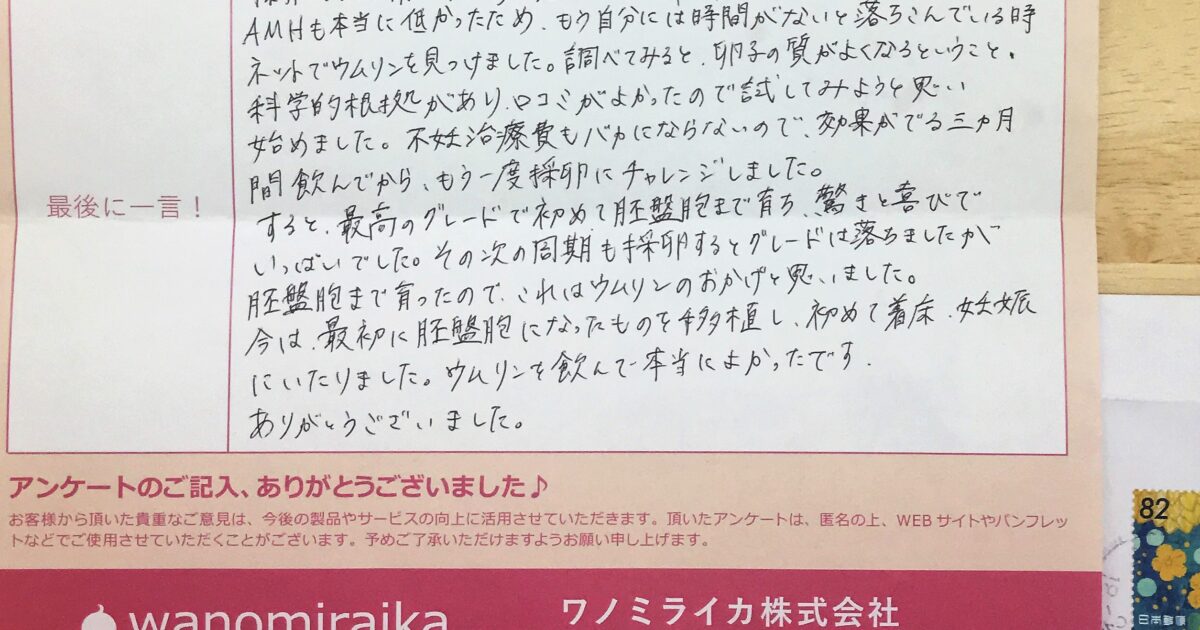 AMHも本当に低かったため、もう自分には時間がないと落ちこんでいる時
ネットでウムリンを見つけました。調べてみると、卵子の質がよくなるということ。
科学的根拠があり、口コミがよかったので試してみようと思い
始めました。不妊治療費もバカにならないので、効果がでる三ヵ月
間飲んでから、もう一度採卵にチャレンジしました。
すると、最高のグレードで初めて胚盤胞まで育ち、驚きと喜びで
いっぱいでした。その次の周期も採卵するとグレードは落ちましたが
胚盤胞まで育ったので、これはウムリンのおかげと思いました。
今は、最初に胚盤胞になったものを移植し、初めて着床、妊娠
にいたりました。ウムリンを飲んで本当によかったです.
ありがとうございました。
最後に一言！
アンケートのご記入、ありがとうございました♪
お客様から頂いた貴重なご意見は、今後の製品やサービスの向上に活用させていただきます。頂いたアンケートは、匿名の上、WEBサイトやパンフレッ
トなどでご使用させていただくことがございます。予めご了承いただけますようお願い申し上げます。
wanomiraika
ワノミライカ株式会社
82
日本郵便